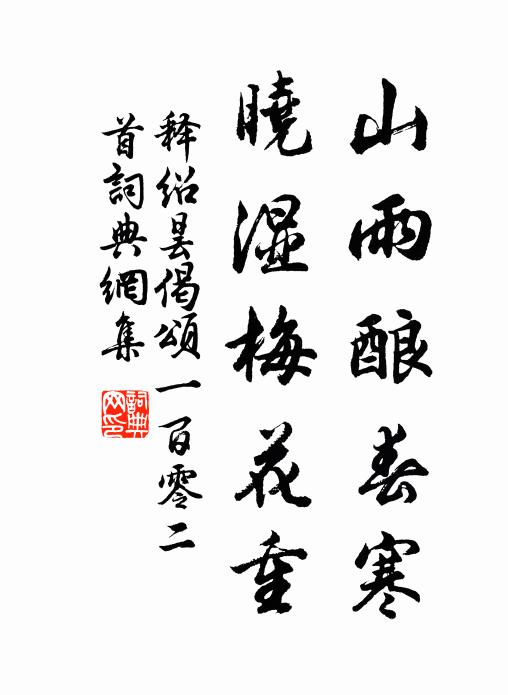 山雨酿春寒
曉湿梅花重
释绍昙偈頌一百零二
首詞典網集
詞典
网印